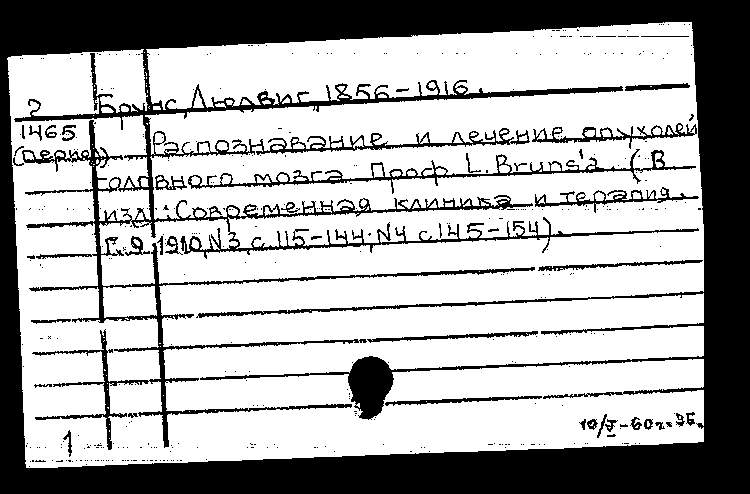 ? Брунс, Людвиг, 1856-1916.
1465
(период) Распознавание и лечение опухолей
головного мозга Проф L. Bruns'а. (В
изд.: Современная клиника и терапия.
Г. 9, 1910, N3, с. 115-144; N4 с 145-154).
1
10/V-60г.